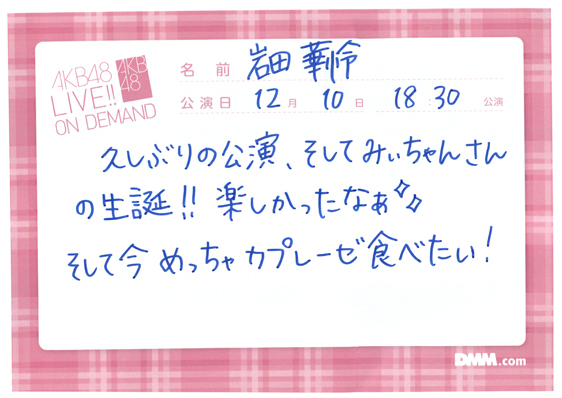 AKB48
LIVE!!
ON DEMAND
AKB
48
名前 岩田 華怜
公演日 12月 10日 18:30 公演
久しぶりの公演、そしてみぃちゃんさん
の生誕!! 楽しかったなぁ✧✧
そして今 めっちゃカプレーゼ食べたい!
DMM.com